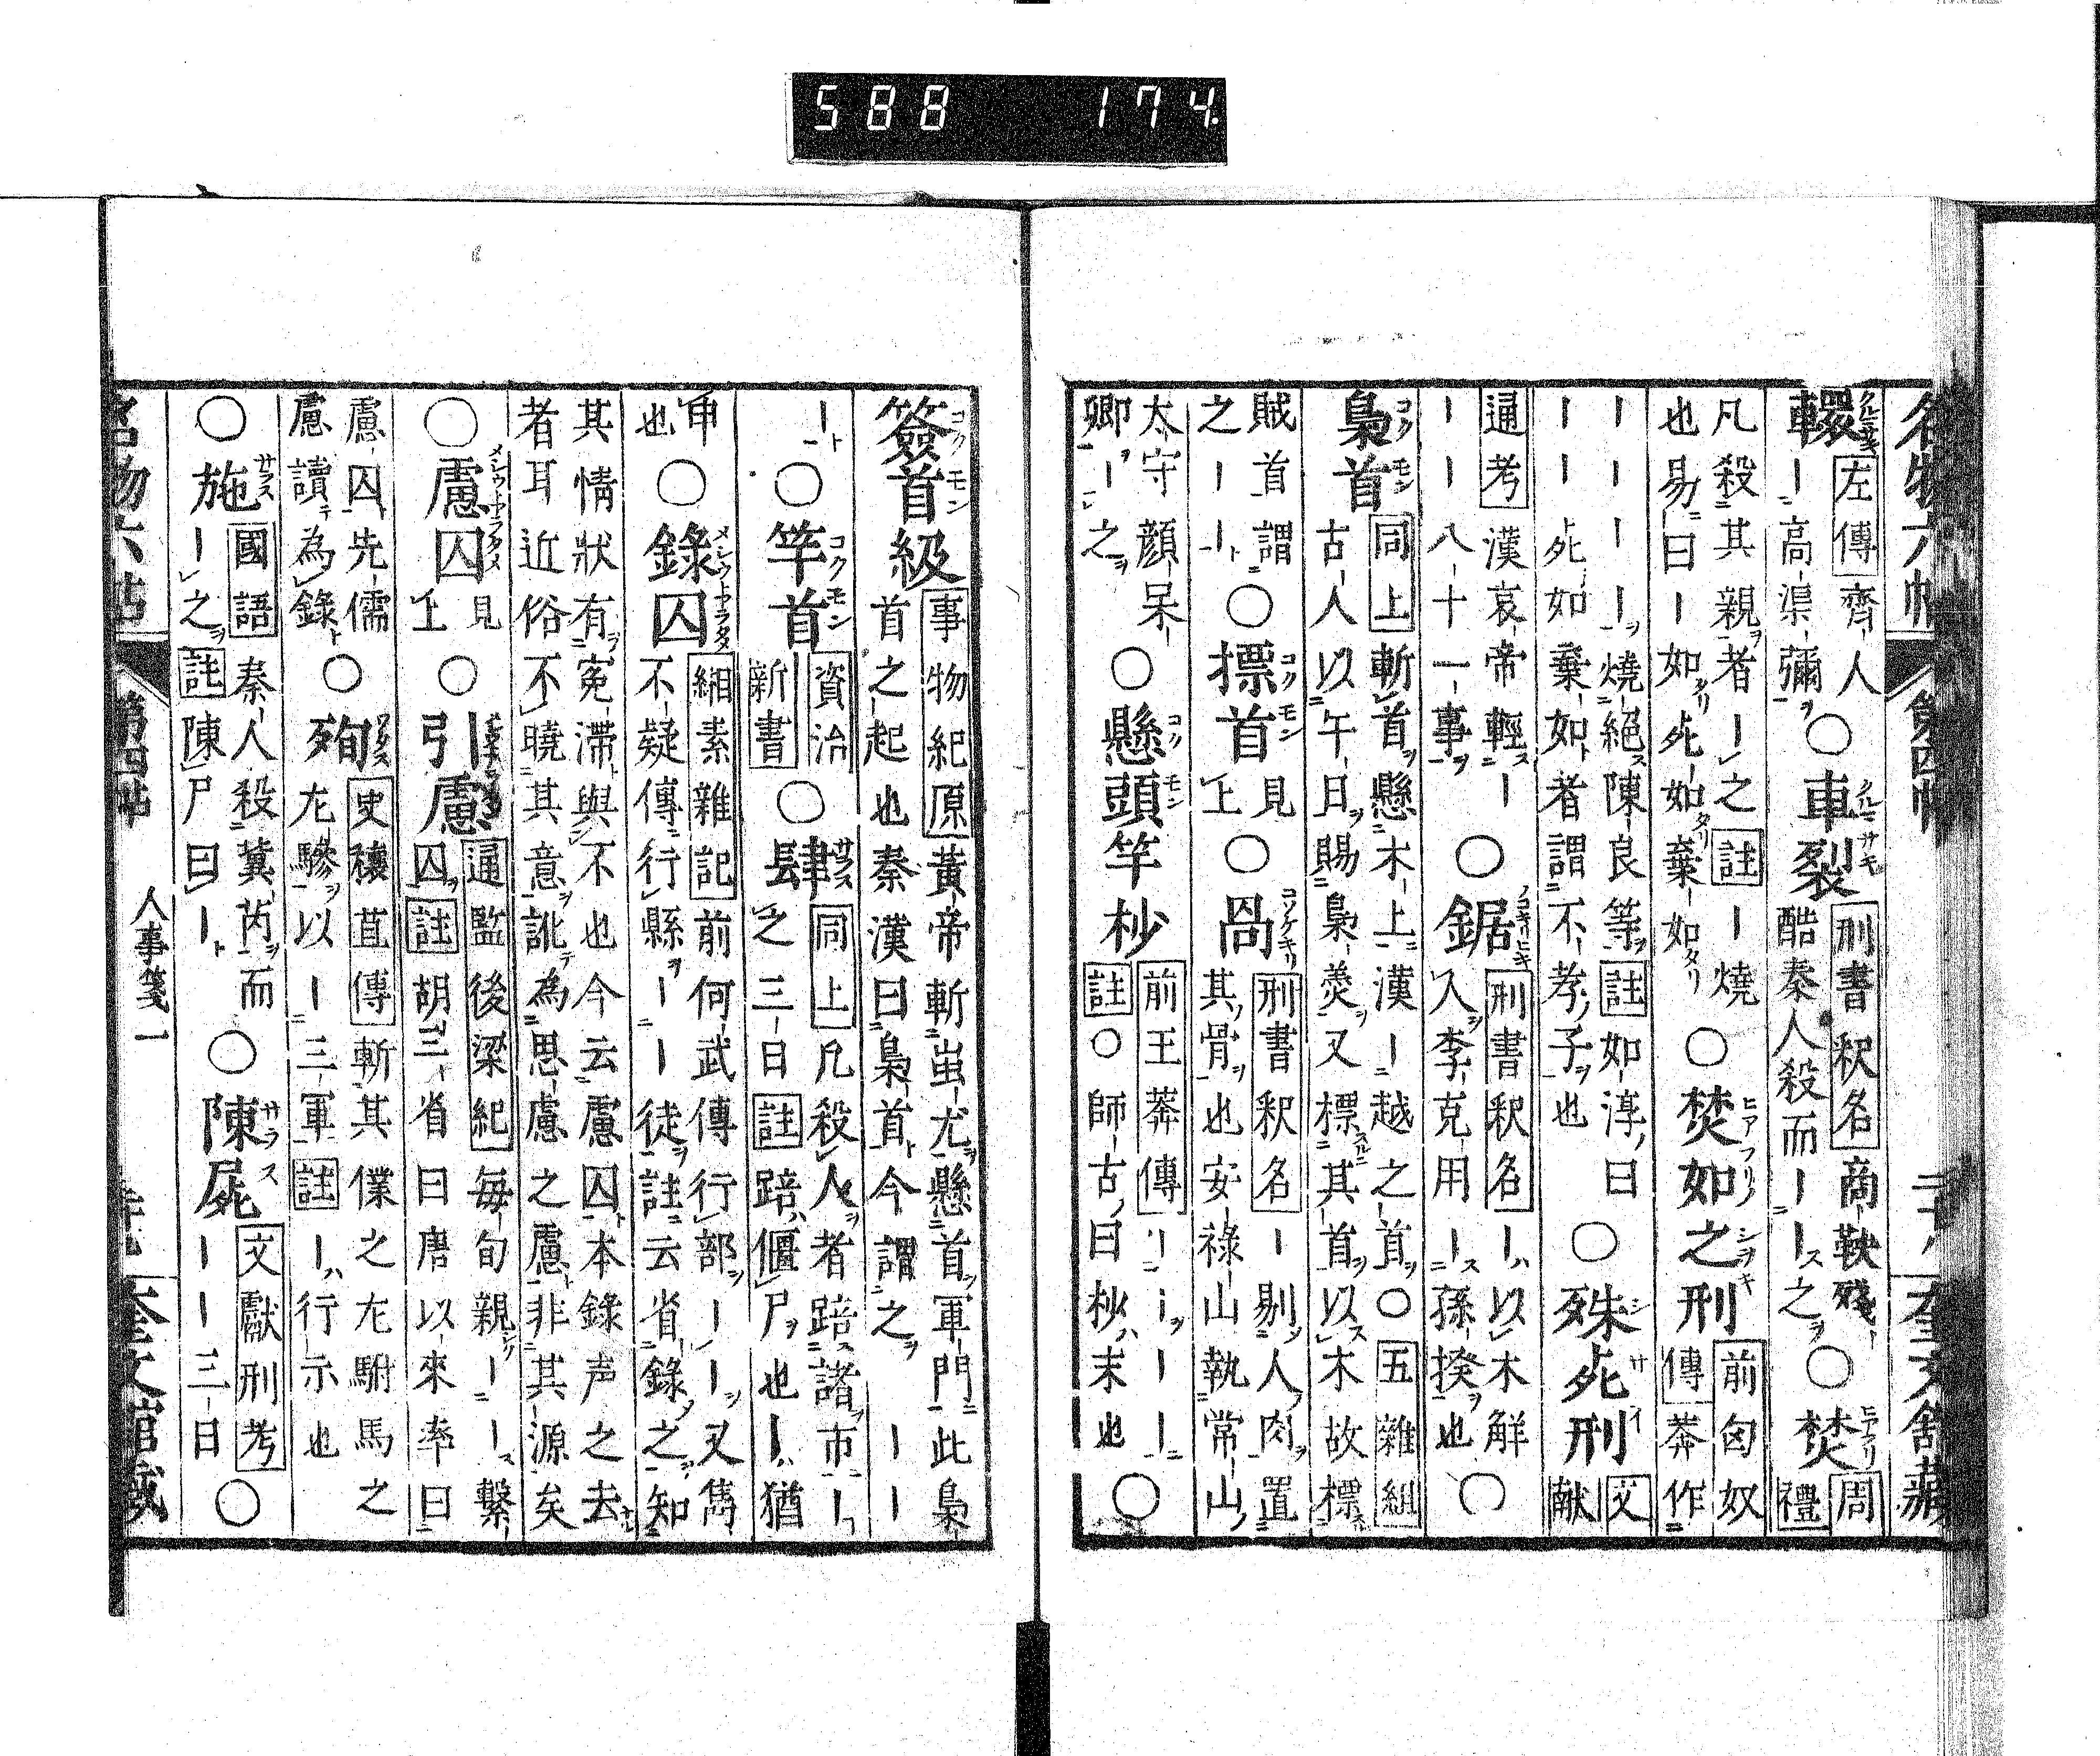 588 174
名物六帖 第四帖 二十八 奎文館藏
轘 左傳齊人
轘ー高渠彌 ○車裂 刑書釈名商鞅殘ー
酷秦人殺而ーー之 ○焚 周禮
凡殺其親者ー之註ー燒
也易曰ー如死如棄如 ○焚如之刑 前匈奴傳莽作
ーーーー燒絕陳良等註如淳曰
ーー死如棄如者謂不孝子也 ○殊死刑 文献
通考漢哀帝輕ー
ーー八十一事 ○鋸 刑書釈名ー以木解
人李克用ー孫揆也 ○
梟首 同上斬首懸木上漢ー越之首○五雜組
古人以午日賜梟羮又標其首以木故標
賊首謂
之ーー ○摽首 見上 ○咼 刑書釈名ー剔人肉置
其骨也安祿山執常山
太守顔杲
卿ー之 ○懸頭竿杪 前王莽傳ーーーー
註○師古曰杪末也 ○
簽首級 事物紀原黃帝斬蚩尤懸首軍門此梟
首之起也秦漢曰梟首今謂之ーー
ー ○竿首 資治新書 ○肆 同上凡殺人者踣諸市ー
之三日註踣僵尸也ー猶
申
也 ○錄囚 緗素雜記前何武傳行部ーー又雋
不疑傳行縣ーー徒註云省錄之知
其情狀有寃滯與不也今云慮囚本錄声之去
者耳近俗不曉其意訛為思慮之慮非其源矣
○慮囚 見上 ○引慮 通監後梁紀毎旬親ーー繫
囚註胡三省曰唐以來率曰
慮囚先儒
慮讀為錄 ○殉 史穰苴傳斬其僕之左駙馬之
左驂以ー三軍註ー行示也
○施 國語秦人殺冀芮而
ー之註陳尸曰ー ○陳屍 文獻刑考
ーー三日 ○
名物六帖 第四帖 人事箋一 奎文館藏